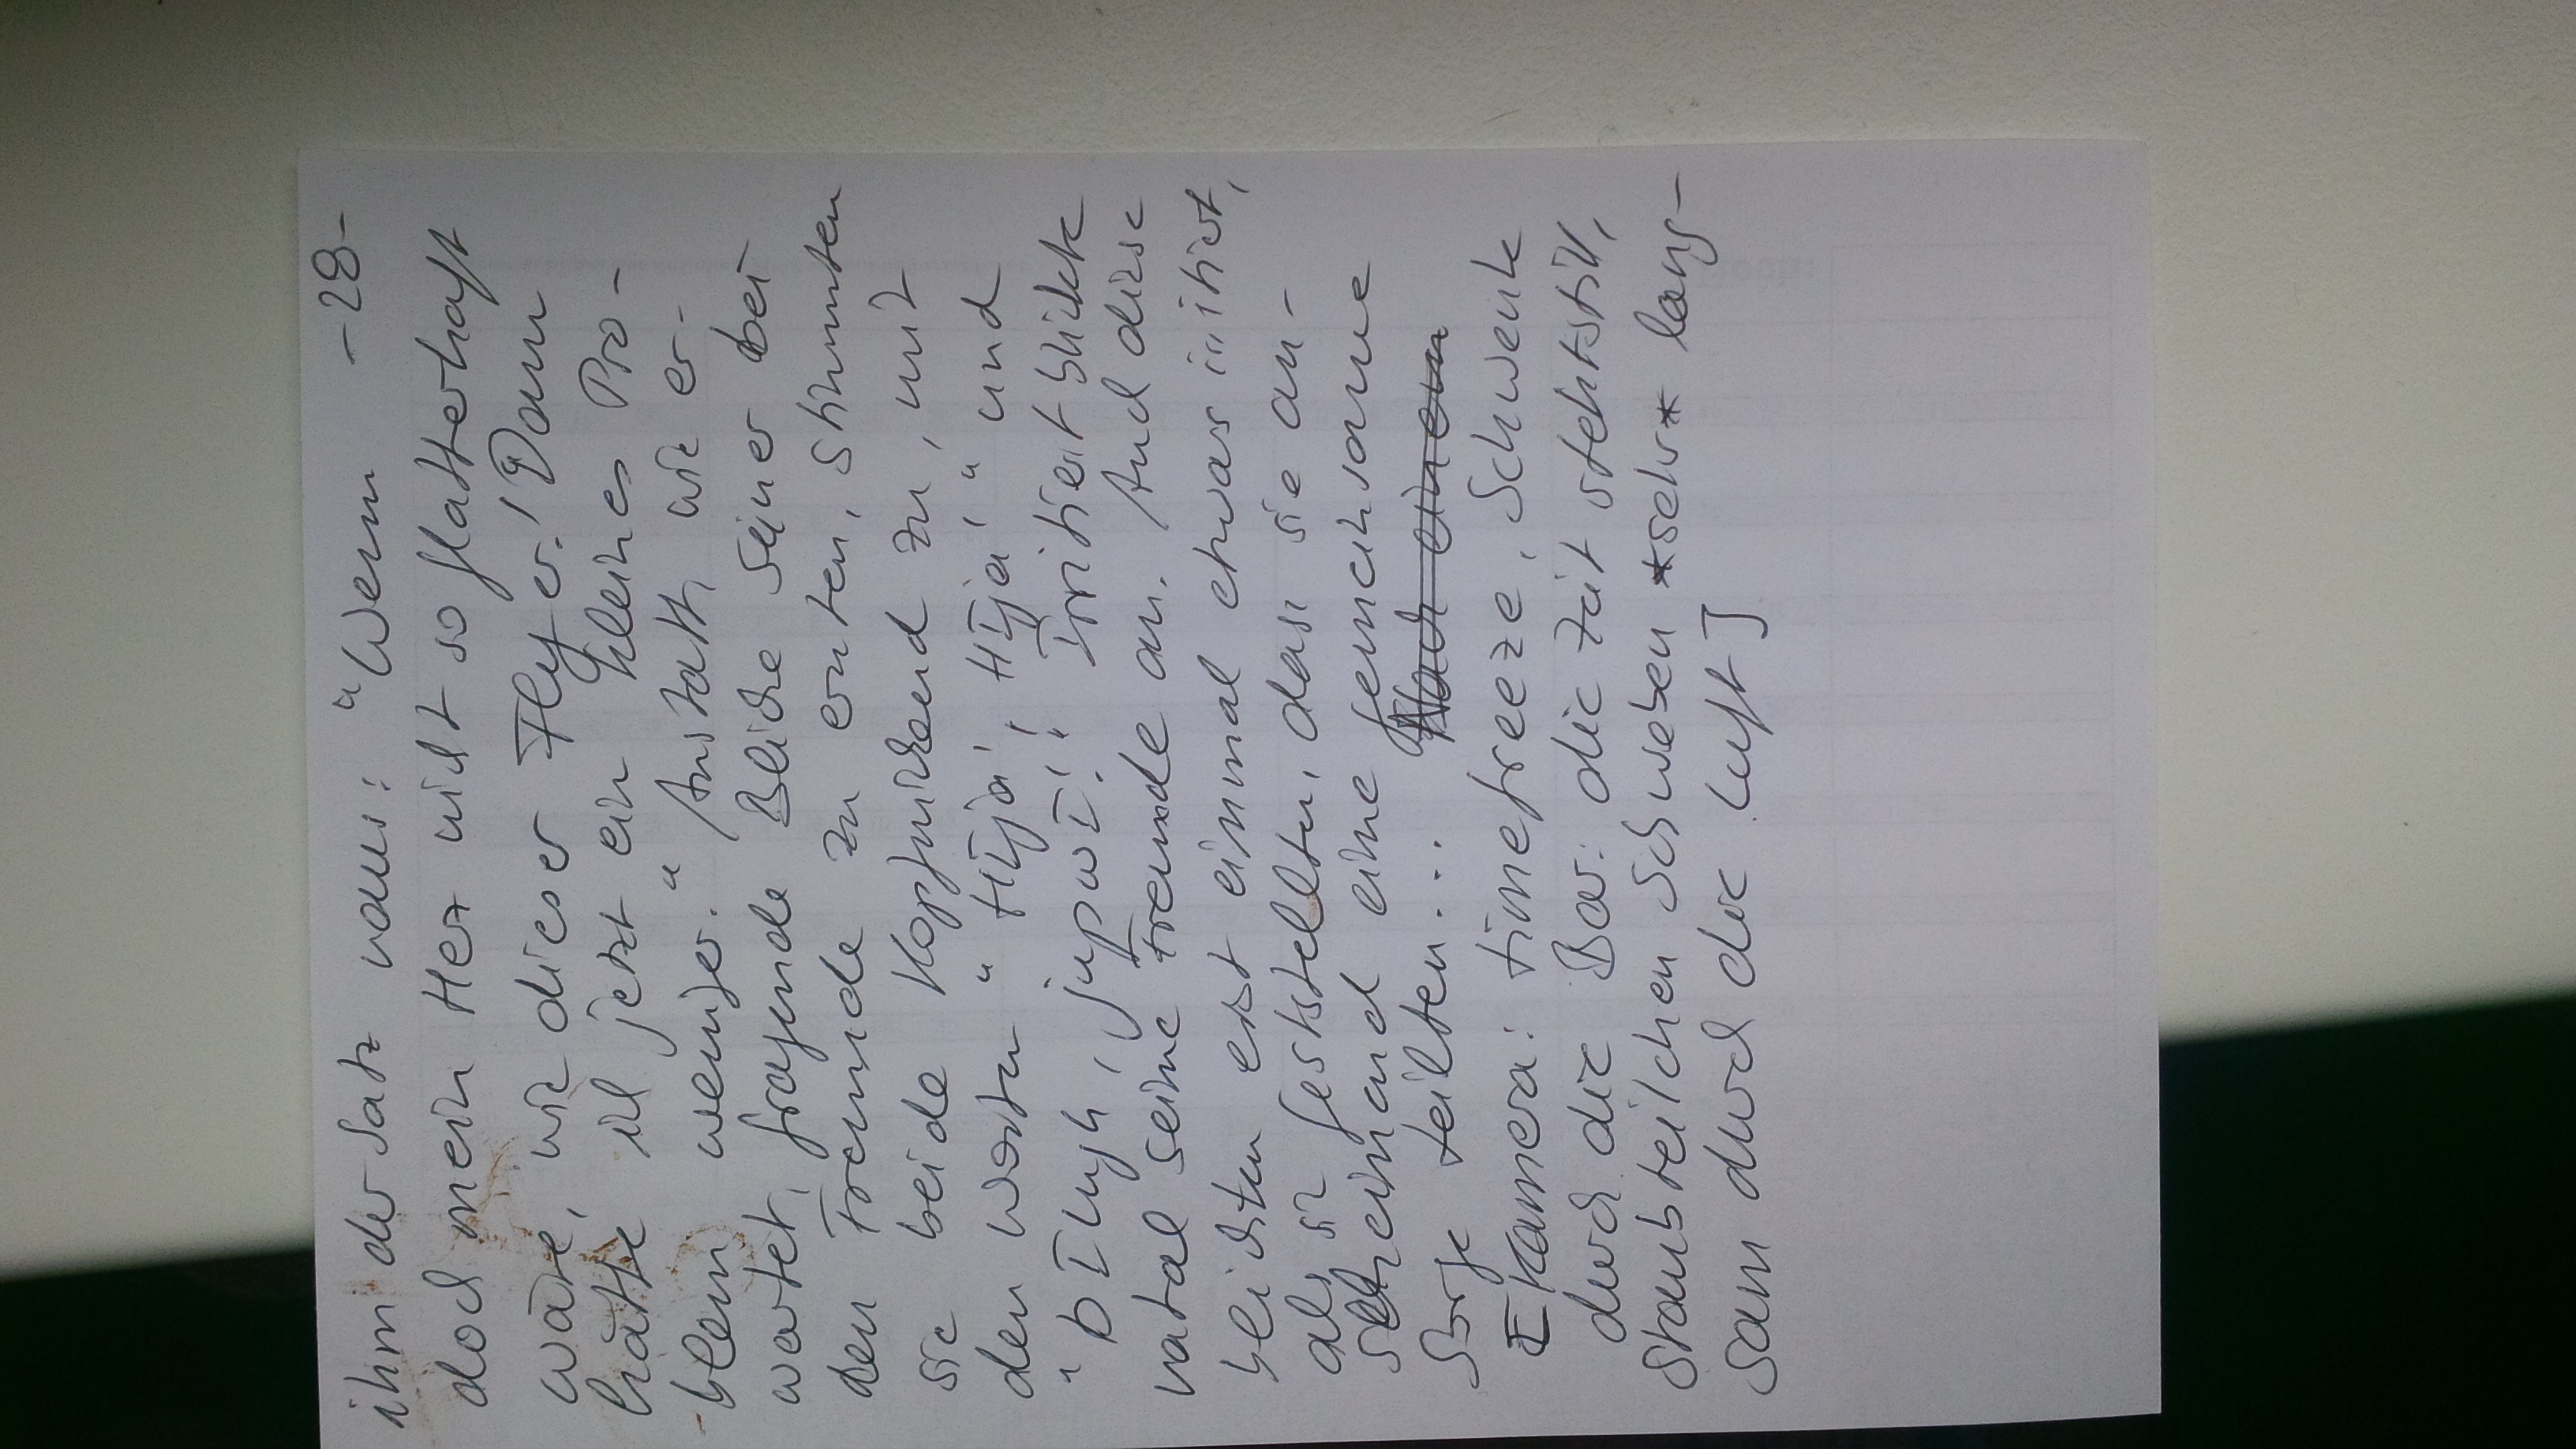 ihm der Satz raus: "Wenn -28-
doch mein Herz nicht so flatterhaft
wäre, wie dieser Flyer! Dann
hätte ich jetzt ein kleines Pro-
blem weniger." Anstatt, wie er-
wartet, fragende Blicke seiner bei
den Freunde zu ernten, stimmten
sie beide kopfnickend zu, mit
den Worten "Hĩja! Hĩja," und
", jupwĩ!! Irritiert blickte
Natal seine Freunde an. Auch diese
blickten erst einmal etwas irritiert,
als sie feststellten, dass sie an-
scheinend eine gemeinsame
Sorge teilten... Nach einem
[Kamera: timefreeze, Schwenk
durch die Bar: die Zeit steht still,
Staubteilchen schweben *sehr* lang-
sam durch die Luft]